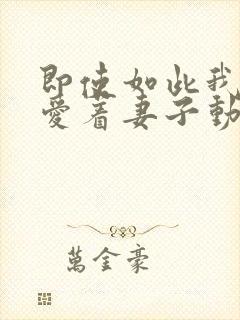 即使如此我
爱着妻子動
萬金豪